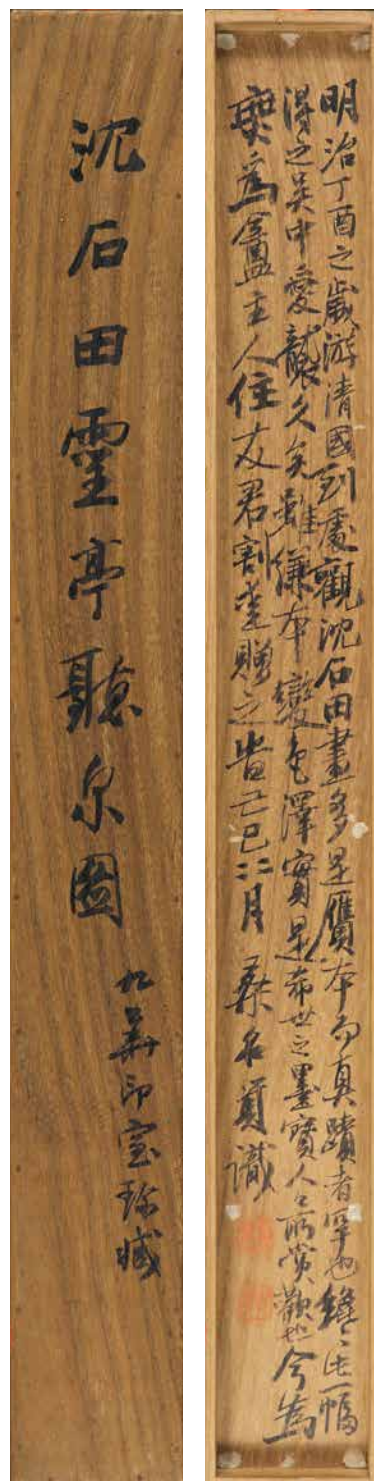 沈石田靈亭聽泉圖
九華印室珍藏
明治丁酉之歲游清國到處觀沈石田畫多是贋本而真蹟者罕也此一幅
得之吳中愛襲久矣雖縑本變色澤實是希世之墨寶人々所賞歡也今為
無為盦主人住友君割愛贈之旹己巳二月 桑名箕識